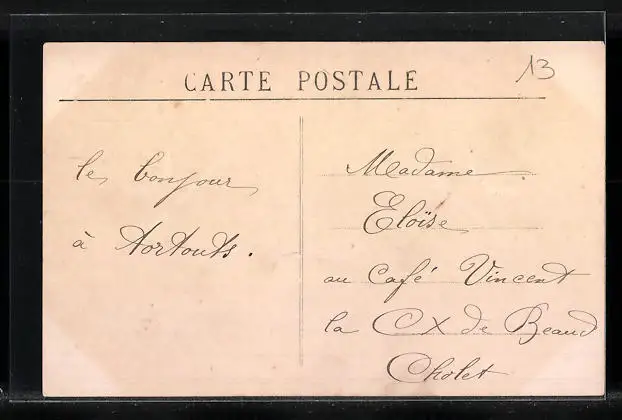 CARTE POSTALE
13
le bonjour
à tortouts.
Madame
Eloïse
au Café Vincent
la CX de Beaud
Cholet